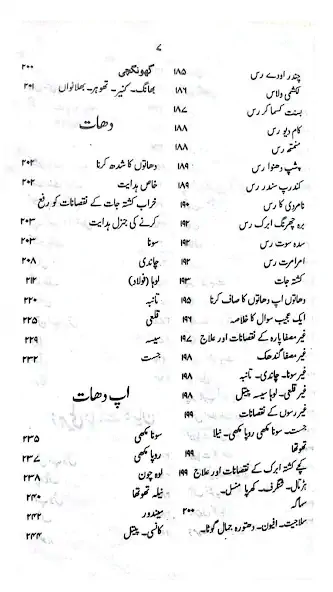 ۷
چندر اودے رس ۱۸۵
لکشمی ولاس ۱۸۶
بسنت کسماکر رس ۱۸۷
کام دیو رس ۱۸۸
منمتھ رس ۱۸۸
پشپ دھنوا رس ۱۸۹
کندرپ سندر رس ۱۸۹
نامردی کا رس ۱۹۰
برہ چھرنگ ابرک رس ۱۹۲
سدہ سوت رس ۱۹۲
امرامرت رس ۱۹۲
کشتہ جات ۱۹۳
دھاتوں اپ دھاتوں کا صاف کرنا ۱۹۵
ایک عجیب سوال کا خلاصہ ۱۹۶
غیر مصفا پارہ کے نقصانات اور علاج ۱۹۷
غیر مصفا گندھک ۱۹۸
غیر سونا۔ چاندی۔ تانبہ ۱۹۸
غیر قلعی۔ لوہا سیسہ پیتل ۱۹۸
غیر رسوں کے نقصانات ۱۹۹
جست۔ سونا مکھی روپا مکھی۔ نیلا
تھوتھا ۱۹۹
کچے کشتہ ابرک کے نقصانات اور علاج ۱۹۹
ہڑتال۔ شنگرف۔ کھرپا منسل۔
سہاگہ ۲۰۰
سلاجیت۔ افیون۔ دھتورہ جمال گوٹا۔
گھونگچی ۲۰۰
بھانگ۔ کنیر۔ تھوہر۔ بھلانواں ۲۰۱
دھات
دھاتوں کا شدھ کرنا ۲۰۲
خاص ہدایت ۲۰۲
خراب کشتہ جات کے نقصانات کو رفع
کرنے کی جنرل ہدایت ۲۰۳
سونا ۲۰۳
چاندی ۲۰۸
لوہا (فولاد) ۲۱۲
تانبہ ۲۲۰
قلعی ۲۲۵
سیسہ ۲۲۹
جست ۲۳۲
اپ دھات
سونا مکھی ۲۳۵
روپا مکھی ۲۳۷
لوہ چون ۲۳۸
نیلہ تھوتھا ۲۴۰
سیندور ۲۴۲
کانسی۔ پیتل ۲۴۴